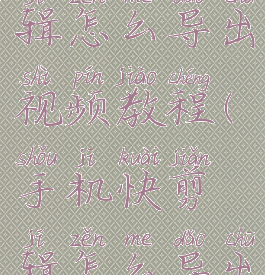 辑怎么导出
shì pín jiào chéng
视频教程(
shǒu jī kuài jiǎn
手机快剪
jí zěn me dǎo chū
辑怎么导出